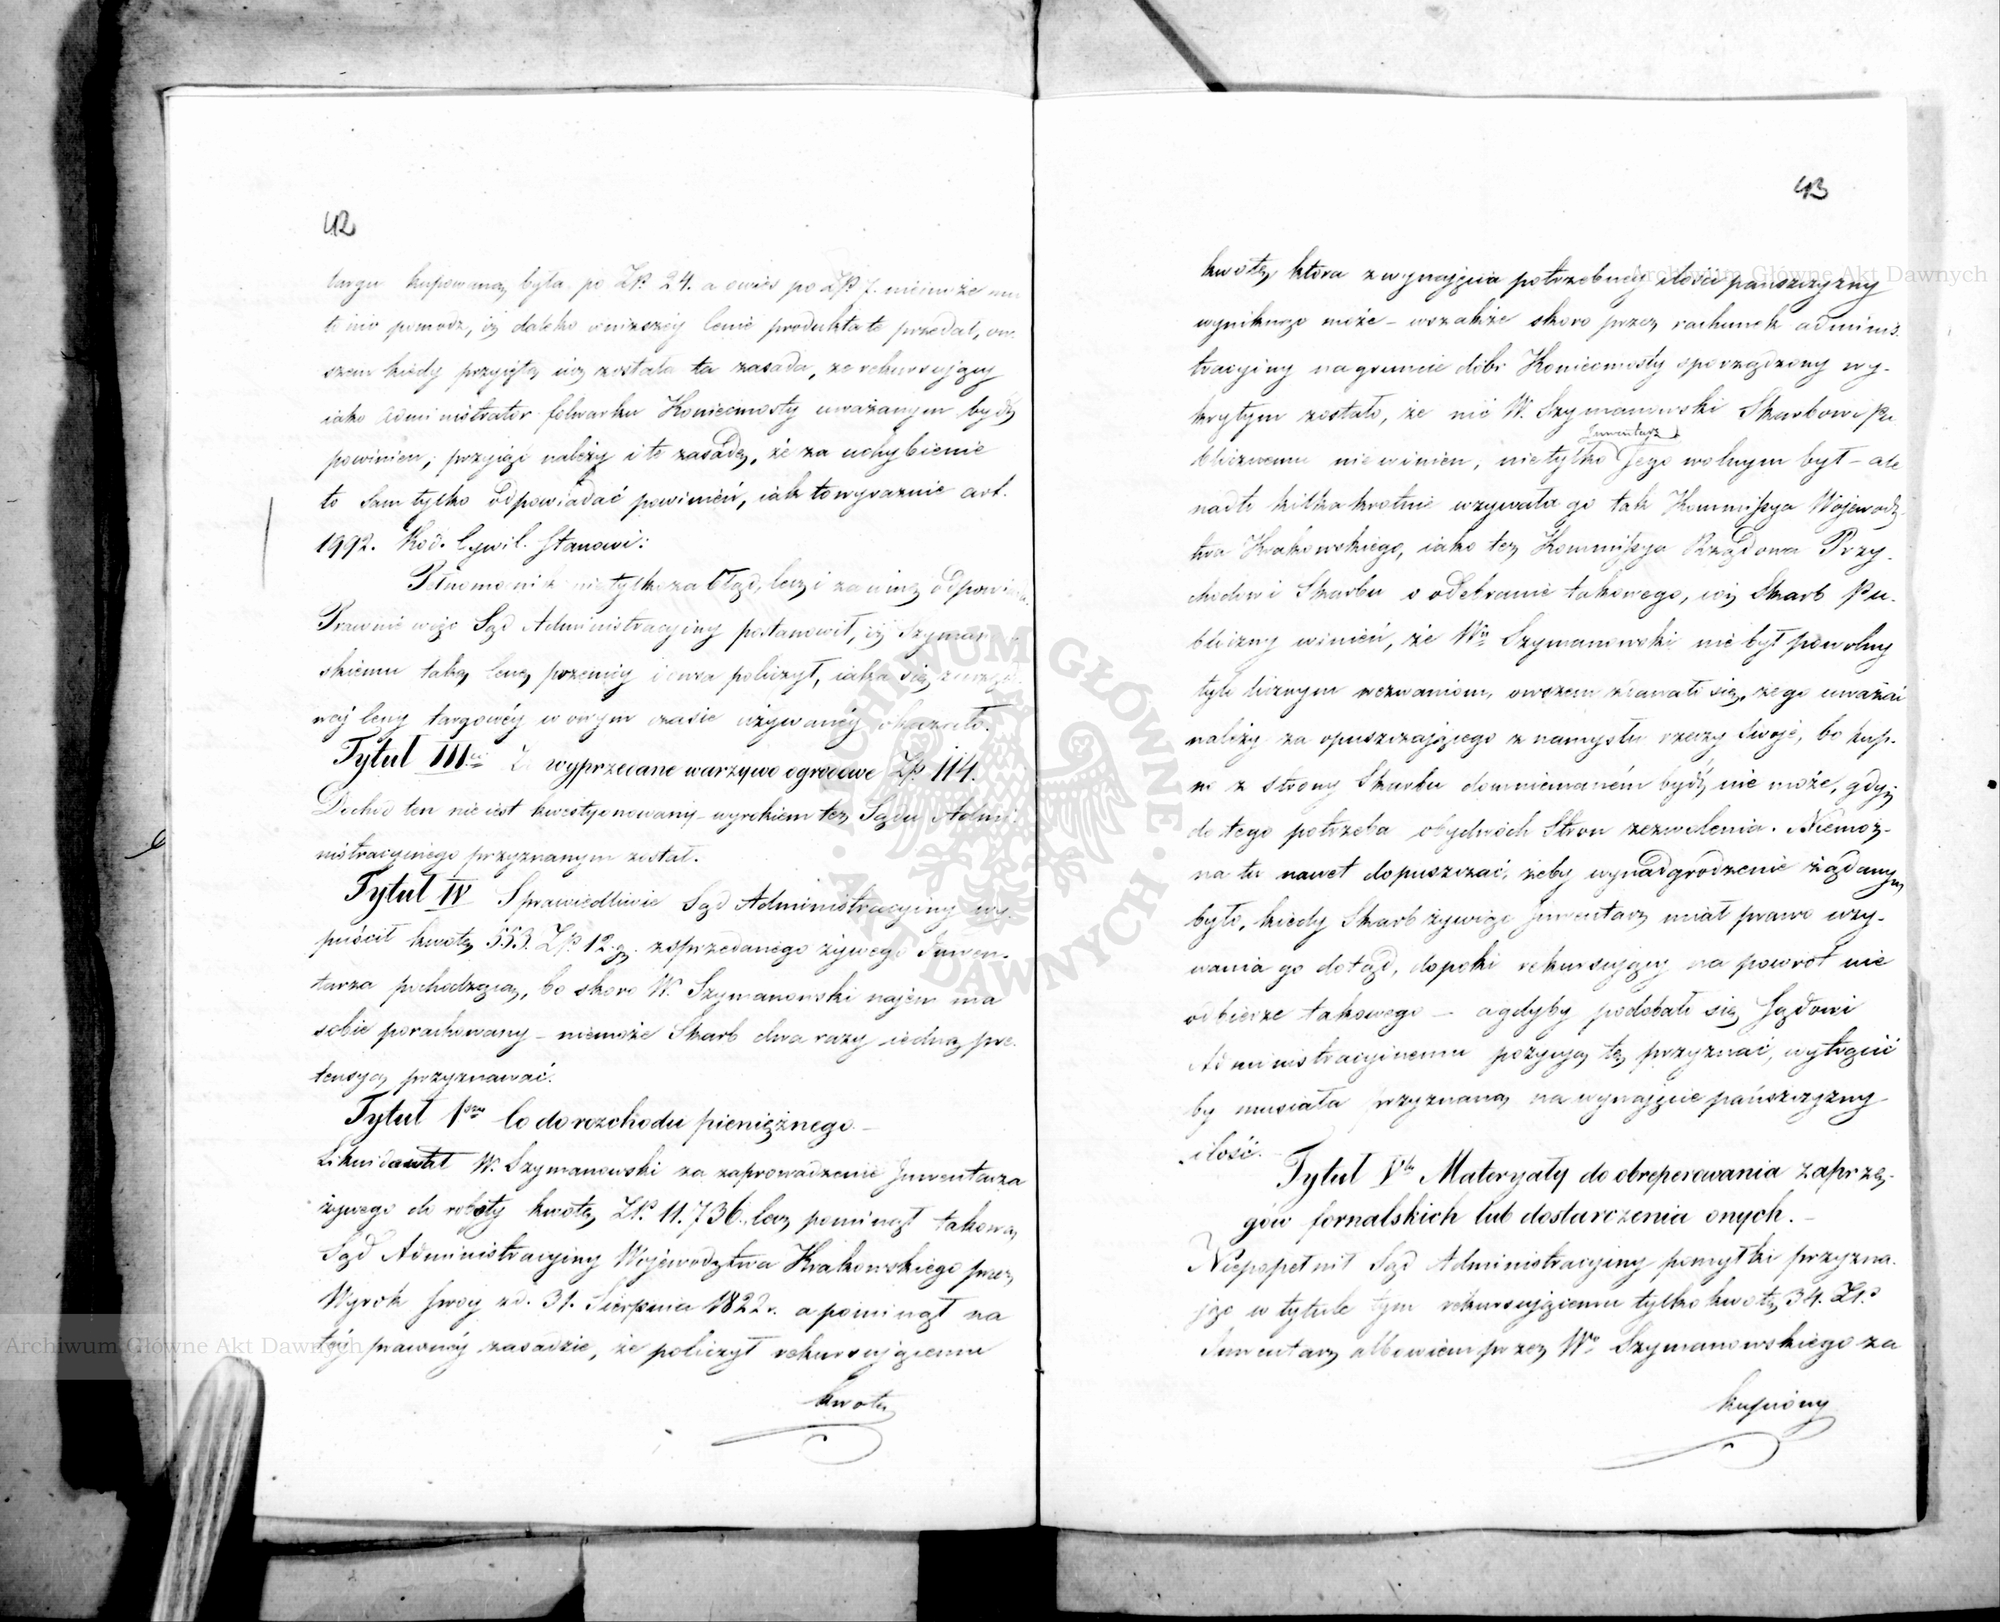 42
targu kupowaną była po Zł. 24. a owies po Złp. 7. niemoże mu
to nic pomodz, iż daleko w niższéy Cenie produkta te przedał, ow-
szem kiedy przyiętą iuż została ta zasada, że rekursuiący
iako Administrator folwarku Koniecmosty uważanym bydź
powinien, przyiąć należy i tę zasadę, że za uchybienie
to Sam tylko odpowiadać powinień, iak to wyraznie art.
1992. Kod. Cywil. Stanowi:
Pełnomocnik nietylko za błąd, lecz i za winę odpowiada.
Prawnie więc Sąd Administracyiny postanowił, iż Szyman
skiemu taką Cenę pszenicy i owsa policzył, iaka się z
néj Ceny targowéy w owym czasie używanéy okazało.
Tytuł III.ci Za wyprzedane warzywo ogrodowe Złp 114.
Dochód ten nie iest kwestyonowany – wyrokiem też Sądu Admi-
nistracyinego przyznanym został.
Tytuł IV Sprawiedliwie Sąd Administracyiny wy-
puścił kwotę 553. Złp 12. g. z sprzedanego żywego Inwen-
tarza pochodzącą, bo skoro W. Szymanowski najem ma
sobie porachowany – niemoże Skarb dwa razy iedną pre-
tensyą przyznawać.
Tytuł 1szy Co do rozchodu pieniężnego –
Likwidował W. Szymanowski za zaprowadzenie Inwentarza
żywego do roboty kwotę Zł. 11.736., lecz pominął takową
Sąd Administracyiny Województwa Krakowskiego przez
Wyrok swoy z d. 31. Sierpnia 1822 r. a pominął na
téy prawnéy zasadzie, że policzył rekursuiącemu
kwotę
43
kwotę, która z wynajęcia potrzebnéy ilości pańszczyzny
wyniknąć może – wszakże skoro przez rachunek adminis-
tracyiny na gruncie dóbr Koniecmosty sporządzony wy-
krytym zostało, że nic W. Szymanowski Skarbowi Pu-
blicznemu nie winien, nietylko Jego Inwentarz wolnym był – ale
nadto kilkakrotnie wzywała go tak Kommissya Wojewodz-
twa Krakowskiego, iako też Kommissya Rządowa Przy-
chodów i Skarbu o odebranie takowego, iż Skarb Pu-
bliczny winień, że Wny Szymanowski nie był powolny
tylo licznym wezwaniom, owszem zdawało się, że go uważać
należy za opuszczającego z namysłu rzeczy swoje, bo kup-
no z strony Skarbu domniemaném bydź nie może, gdyż
do tego potrzeba obydwóch Stron zezwolenia. Niemoż-
na tu nawet dopuszczać, żeby wynadgrodzenie żądanym
było, kiedy Skarb żywiąc Inwentarz miał prawo uży-
wania go dotąd, dopoki rekursuiący na powrót nie
odbierze takowego – a gdyby podobało się Sądowi
Administracyinemu pozycyą tę przyznać, wytrącić
by musiała przyznaną na wynajęcie pańszczyzny
ilość. –
Tytuł Vty Materyały do obreperowania zaprzę-
gów fornalskich lub dostarczenia onych. –
Niepopełnił Sąd Administracyiny pomyłki przyzna-
jąc w tytule tym rekursuiącemu tylko kwotę 34. Zł.
Inwentarz albowiem przez Wo Szymanowskiego za
kupiony
Archiwum Główne Akt Dawnych
Archiwum Główne Akt Dawnych
ARCHIWUM GŁÓWNE AKT DAWNYCH